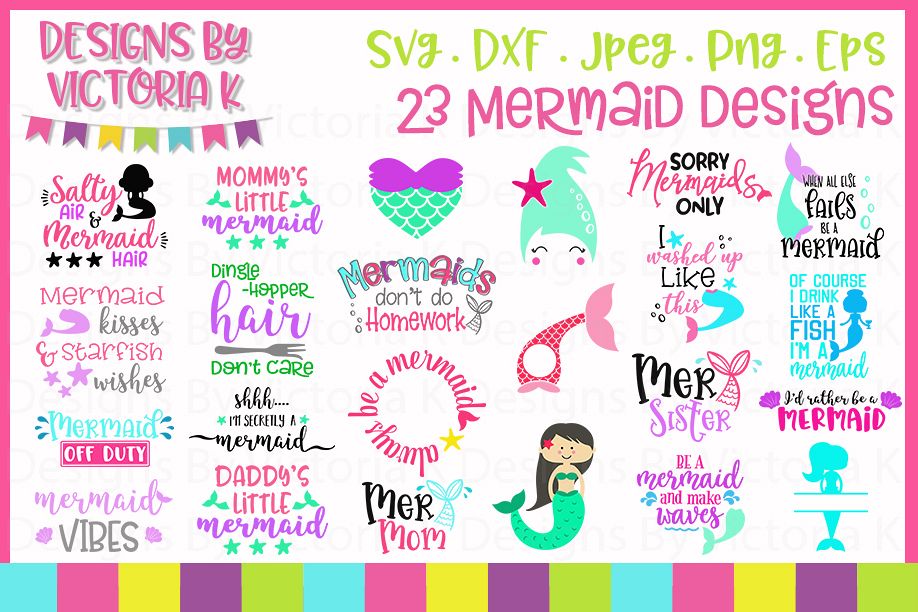 DESIGNS BY
VICTORIA K
Svg . DXF . Jpeg . Png . Eps
23 Mermaid Designs
Salty
AIR
&
Mermaid
HAIR
MOMMY'S
LITTLE
mermaid
SORRY
Mermaids
ONLY
WHEN ALL ELSE
fails
BE A
MERMAID
Mermaid
kisses
& starfish
wishes
Dingle
-Hopper
hair
Don't care
Mermaids
don't do
Homework
I
washed up
Like
this
OF COURSE
I DRINK
LIKE A
FISH
I'M A
mermaid
Mermaid
OFF DUTY
shhh....
I'M SECRETLY A
mermaid
be a mermaid
always
Mer
Sister
I'd rather be a
MERMAID
mermaid
VIBES
DADDY'S
LITTLE
mermaid
Mer
Mom
BE A
mermaid
and make
waves
Designs By Victoria K